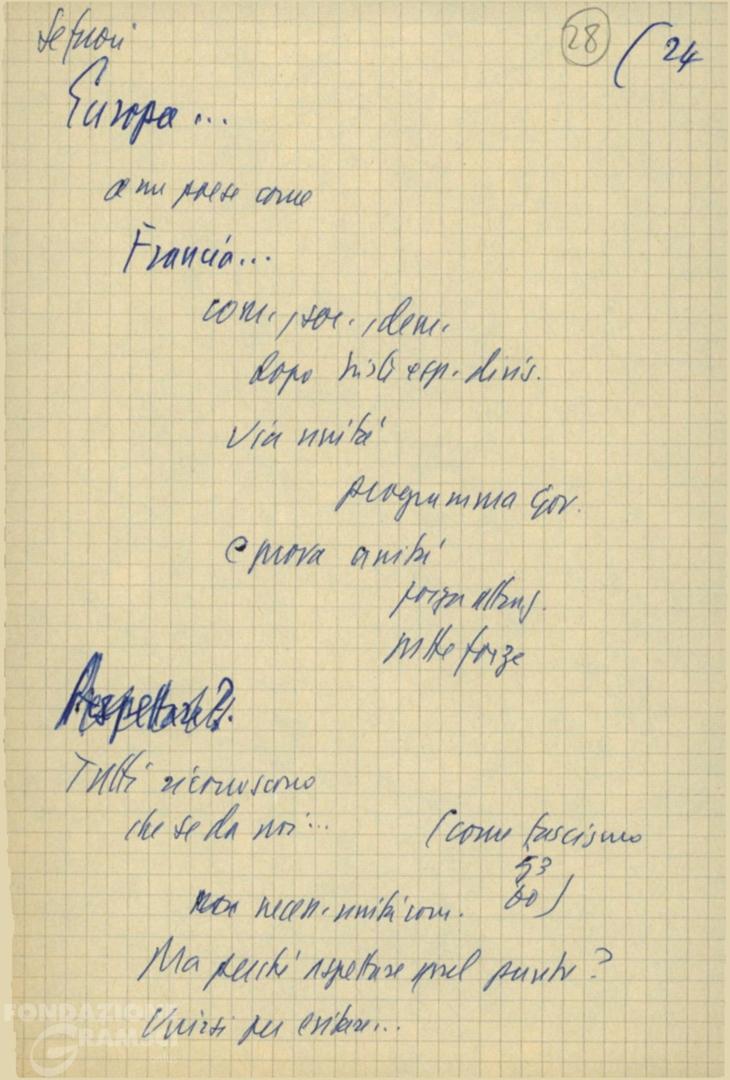 28 (24
Se fuori
Europa...
a un paese come
Francia...
com., soc., dem.
dopo tristi esp. divis.
via unità
programma Gov.
e prova unità
forza
tutte forze
Tutti riconoscono
che se da noi... (come fascismo
53
60)
necess. unità com.
Ma perché aspettare quel punto?
Unirsi per evitare...
FONDAZIONE
GRAMSCI